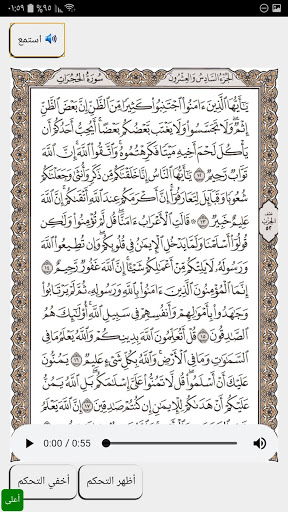 ٠١:٥٩
٩٥٪
استمع
الجزء السادس والعشرون
سورة الحجرات
يَٰٓأَيُّهَا ٱلَّذِينَ ءَامَنُوا۟ ٱجْتَنِبُوا۟ كَثِيرًا مِّنَ ٱلظَّنِّ إِنَّ بَعْضَ ٱلظَّنِّ
إِثْمٌ ۖ وَلَا تَجَسَّسُوا۟ وَلَا يَغْتَب بَّعْضُكُم بَعْضًا ۚ أَيُحِبُّ أَحَدُكُمْ أَن
يَأْكُلَ لَحْمَ أَخِيهِ مَيْتًا فَكَرِهْتُمُوهُ ۚ وَٱتَّقُوا۟ ٱللَّهَ ۚ إِنَّ ٱللَّهَ
تَوَّابٌ رَّحِيمٌ ١٢ يَٰٓأَيُّهَا ٱلنَّاسُ إِنَّا خَلَقْنَٰكُم مِّن ذَكَرٍ وَأُنثَىٰ وَجَعَلْنَٰكُمْ
شُعُوبًا وَقَبَآئِلَ لِتَعَارَفُوٓا۟ ۚ إِنَّ أَكْرَمَكُمْ عِندَ ٱللَّهِ أَتْقَىٰكُمْ ۚ إِنَّ ٱللَّهَ
عَلِيمٌ خَبِيرٌ ١٣ ۞ قَالَتِ ٱلْأَعْرَابُ ءَامَنَّا ۖ قُل لَّمْ تُؤْمِنُوا۟ وَلَٰكِن
قُولُوٓا۟ أَسْلَمْنَا وَلَمَّا يَدْخُلِ ٱلْإِيمَٰنُ فِى قُلُوبِكُمْ ۖ وَإِن تُطِيعُوا۟ ٱللَّهَ
وَرَسُولَهُۥ لَا يَلِتْكُم مِّنْ أَعْمَٰلِكُمْ شَيْـًٔا ۚ إِنَّ ٱللَّهَ غَفُورٌ رَّحِيمٌ ١٤
إِنَّمَا ٱلْمُؤْمِنُونَ ٱلَّذِينَ ءَامَنُوا۟ بِٱللَّهِ وَرَسُولِهِۦ ثُمَّ لَمْ يَرْتَابُوا۟
وَجَٰهَدُوا۟ بِأَمْوَٰلِهِمْ وَأَنفُسِهِمْ فِى سَبِيلِ ٱللَّهِ ۚ أُو۟لَٰٓئِكَ هُمُ
ٱلصَّٰدِقُونَ ١٥ قُلْ أَتُعَلِّمُونَ ٱللَّهَ بِدِينِكُمْ وَٱللَّهُ يَعْلَمُ مَا فِى
ٱلسَّمَٰوَٰتِ وَمَا فِى ٱلْأَرْضِ ۚ وَٱللَّهُ بِكُلِّ شَىْءٍ عَلِيمٌ ١٦ يَمُنُّونَ
عَلَيْكَ أَنْ أَسْلَمُوا۟ ۖ قُل لَّا تَمُنُّوا۟ عَلَىَّ إِسْلَٰمَكُم ۖ بَلِ ٱللَّهُ يَمُنُّ
عَلَيْكُمْ أَنْ هَدَىٰكُمْ لِلْإِيمَٰنِ إِن كُنتُمْ صَٰدِقِينَ ١٧ إِنَّ ٱللَّهَ يَعْلَمُ
0:00 / 0:55
أظهر التحكم
أخفي التحكم
أعلى